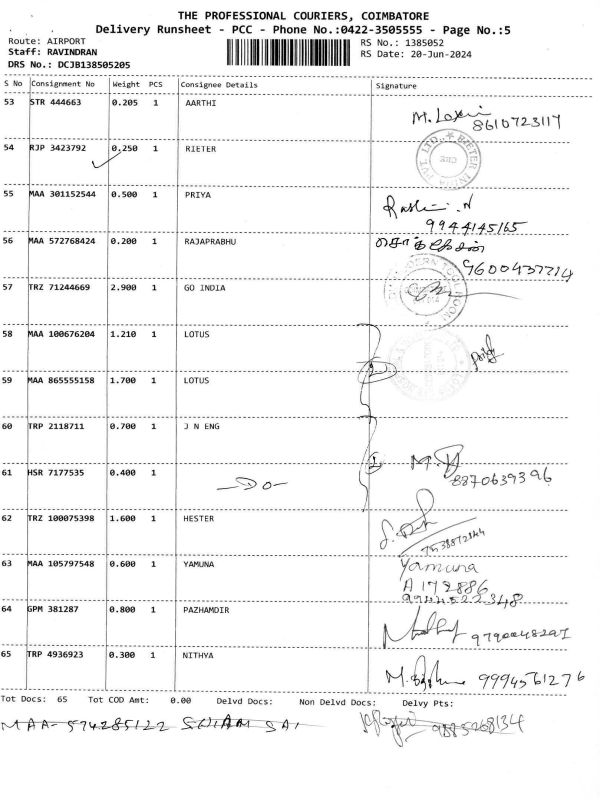 THE PROFESSIONAL COURIERS, COIMBATORE
Delivery Runsheet - PCC - Phone No.:0422-3505555 - Page No.:5
Route: AIRPORT
Staff: RAVINDRAN
DRS No.: DCJB138505205
RS No.: 1385052
RS Date: 20-Jun-2024
S No Consignment No Weight PCS Consignee Details Signature
53 STR 444663 0.205 1 AARTHI
8610723117
54 RJP 3423792 0.250 1 RIETER
55 MAA 301152544 0.500 1 PRIYA
9944145165
56 MAA 572768424 0.200 1 RAJAPRABHU
9600437714
57 TRZ 71244669 2.900 1 GO INDIA
58 MAA 100676204 1.210 1 LOTUS
59 MAA 865555158 1.700 1 LOTUS
60 TRP 2118711 0.700 1 J N ENG
61 HSR 7177535 0.400 1 -Do-
8870639396
62 TRZ 100075398 1.600 1 HESTER
63 MAA 105797548 0.600 1 YAMUNA
Yamuna
A 172886
9944522348
64 GPM 381287 0.800 1 PAZHAMDIR
9790048297
65 TRP 4936923 0.300 1 NITHYA
9994561276
Tot Docs: 65 Tot COD Amt: 0.00 Delvd Docs: Non Delvd Docs: Delvy Pts:
MAA- 574285122
9885268134